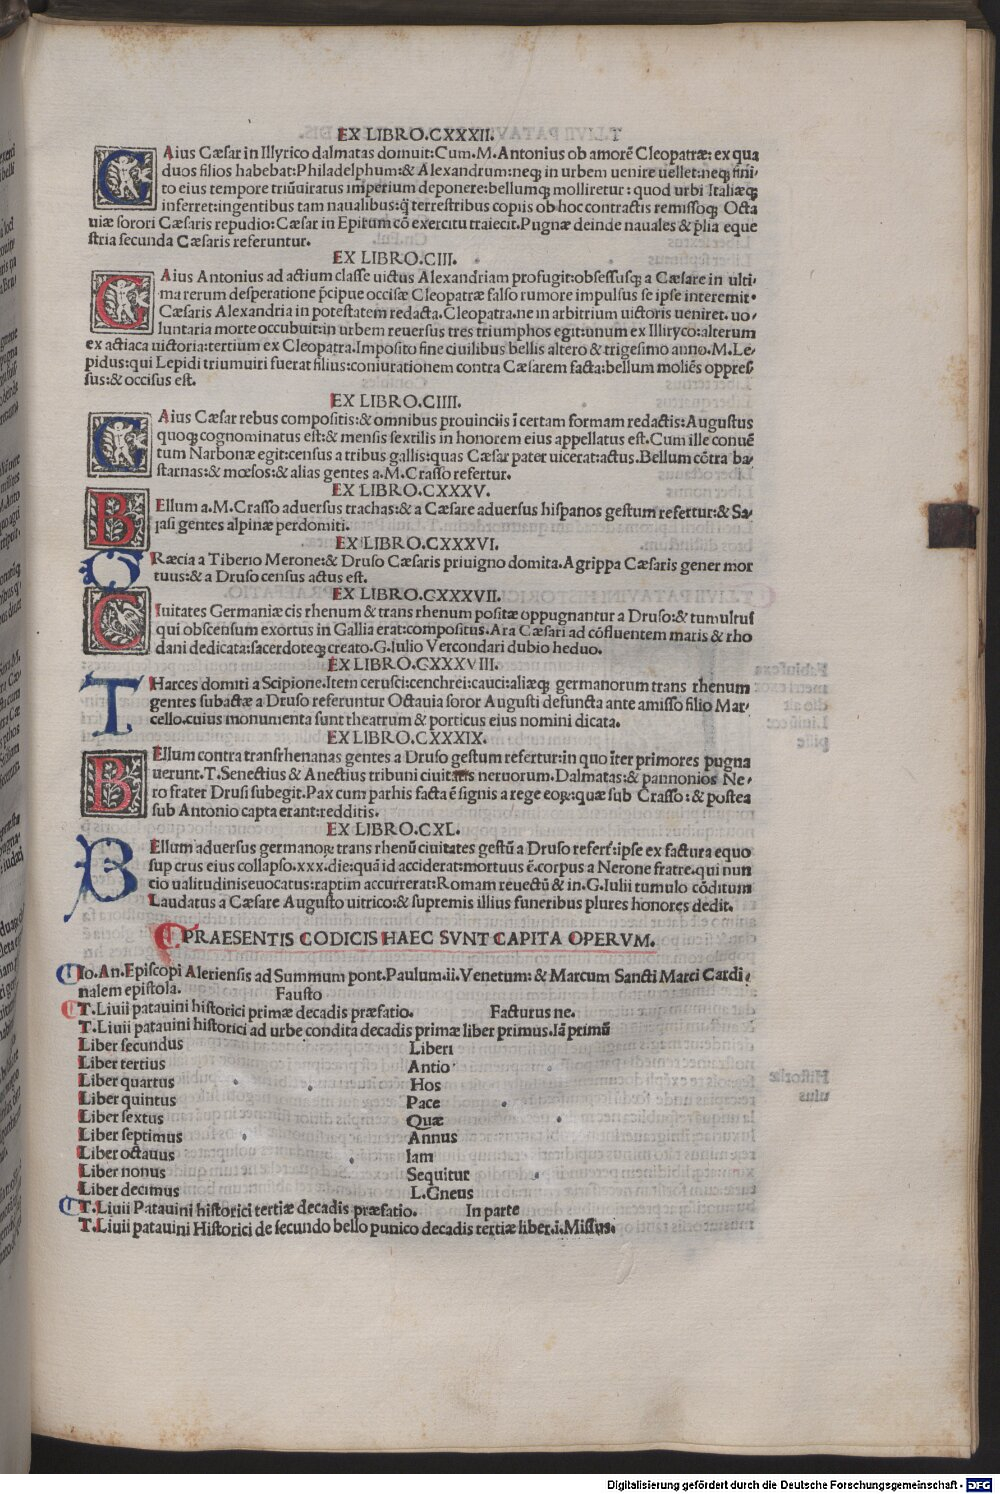 EX LIBRO.CXXXII.
CAius Cæsar in Illyrico dalmatas domuit:Cum.M.Antonius ob amorē Cleopatræ: ex qua
duos filios habebat:Philadelphum:& Alexandrum:neqꝫ in urbem uenire uellet:neqꝫ fini-
to eius tempore triūuiratus imperium deponere:bellumqꝫ molliretur: quod urbi Italiæqꝫ
inferret:ingentibus tam naualibus:q̄ terrestribus copiis ob hoc contractis remissoqꝫ Octa
uiæ sorori Cæsaris repudio: Cæsar in Epirum cō exercitu traiecit.Pugnæ deinde nauales & p̄lia eque
stria secunda Cæsaris referuntur.
EX LIBRO.CIII.
CAius Antonius ad actium classe uictus Alexandriam profugit:obsessusqꝫ a Cæsare in ulti-
ma rerum desperatione p̄cipue occisæ Cleopatræ falso rumore impulsus se ipse interemit.
Cæsaris Alexandria in potestatem redacta.Cleopatra.ne in arbitrium uictoris ueniret. uo-
luntaria morte occubuit:in urbem reuersus tres triumphos egit:unum ex Illiryco:alterum
ex actiaca uictoria:tertium ex Cleopatra.Imposito fine ciuilibus bellis altero & trigesimo anno.M.Le-
pidus:qui Lepidi triumuiri fuerat filius:coniurationem contra Cæsarem facta:bellum moliēs oppres
sus:& occisus est.
EX LIBRO.CIIII.
CAius Cæsar rebus compositis:& omnibus prouinciis ī certam formam redactis:Augustus
quoqꝫ cognominatus est:& mensis sextilis in honorem eius appellatus est.Cum ille conuē
tum Narbonæ egit:census a tribus gallis:quas Cæsar pater uicerat:actus.Bellum cōtra ba-
starnas:& mœsos:& alias gentes a.M.Crasso refertur.
EX LIBRO.CXXXV.
BEllum a.M.Crasso aduersus trachas:& a Cæsare aduersus hispanos gestum refertur:& Sa-
lasi gentes alpinæ perdomiti.
EX LIBRO.CXXXVI.
Ræcia a Tiberio Merone:& Druso Cæsaris priuigno domita.Agrippa Cæsaris gener mor
tuus:& a Druso census actus est.
EX LIBRO.CXXXVII.
CIuitates Germaniæ cis rhenum & trans rhenum positæ oppugnantur a Druso:& tumultus
qui obscensum exortus in Gallia erat:compositus.Ara Cæsari ad cōfluentem maris & rho
dani dedicata:sacerdoteqꝫ creato.G.Iulio Vercondari dubio heduo.
EX LIBRO.CXXXVIII.
THarces domiti a Scipione.Item cerusci:cenchrei:cauci:aliæqꝫ germanorum trans rhenum
gentes subactæ a Druso referuntur Octauia soror Augusti defuncta ante amisso filio Mar-
cello.cuius monumenta sunt theatrum & porticus eius nomini dicata.
EX LIBRO.CXXXIX.
BEllum contra transrhenanas gentes a Druso gestum refertur:in quo īter primores pugna
uerunt.T.Senectius & Anectius tribuni ciuitatis neruorum.Dalmatas:& pannonios Ne-
ro frater Drusi subegit.Pax cum parhis facta ē signis a rege eoꝝ:quæ sub Crasso: & postea
sub Antonio capta erant:redditis.
EX LIBRO.CXL.
BEllum aduersus germanoꝝ trans rhenū ciuitates gestū a Druso refert̄:ipse ex factura equo
sup crus eius collapso.xxx.die:quā id acciderat:mortuus ē.corpus a Nerone fratre.qui nun
cio ualitudinis euocatus:raptim accurrerat:Romam reuectū & in.G.Iulii tumulo cōditum
Laudatus a Cæsare Augusto uitrico:& supremis illius funeribus plures honores dedit.
PRAESENTIS CODICIS HAEC SVNT CAPITA OPERVM.
Io.An.Episcopi Aleriensis ad Summum pont.Paulum.ii.Venetum: & Marcum Sancti Marci Cardi-
nalem epistola. Fausto
T.Liuii patauini historici primæ decadis præfatio. Facturus ne.
T.Liuii patauini historici ad urbe condita decadis primæ liber primus.Iā primū
Liber secundus Liberi
Liber tertius Antio
Liber quartus Hos
Liber quintus Pace
Liber sextus Quæ
Liber septimus Annus
Liber octauus Iam
Liber nonus Sequitur
Liber decimus L.Gneus
T.Liuii Patauini historici tertiæ decadis præfatio. In parte
T.Liuii patauini Historici de secundo bello punico decadis tertiæ liber.i.Missus.
Digitalisierung gefördert durch die Deutsche Forschungsgemeinschaft - DFG